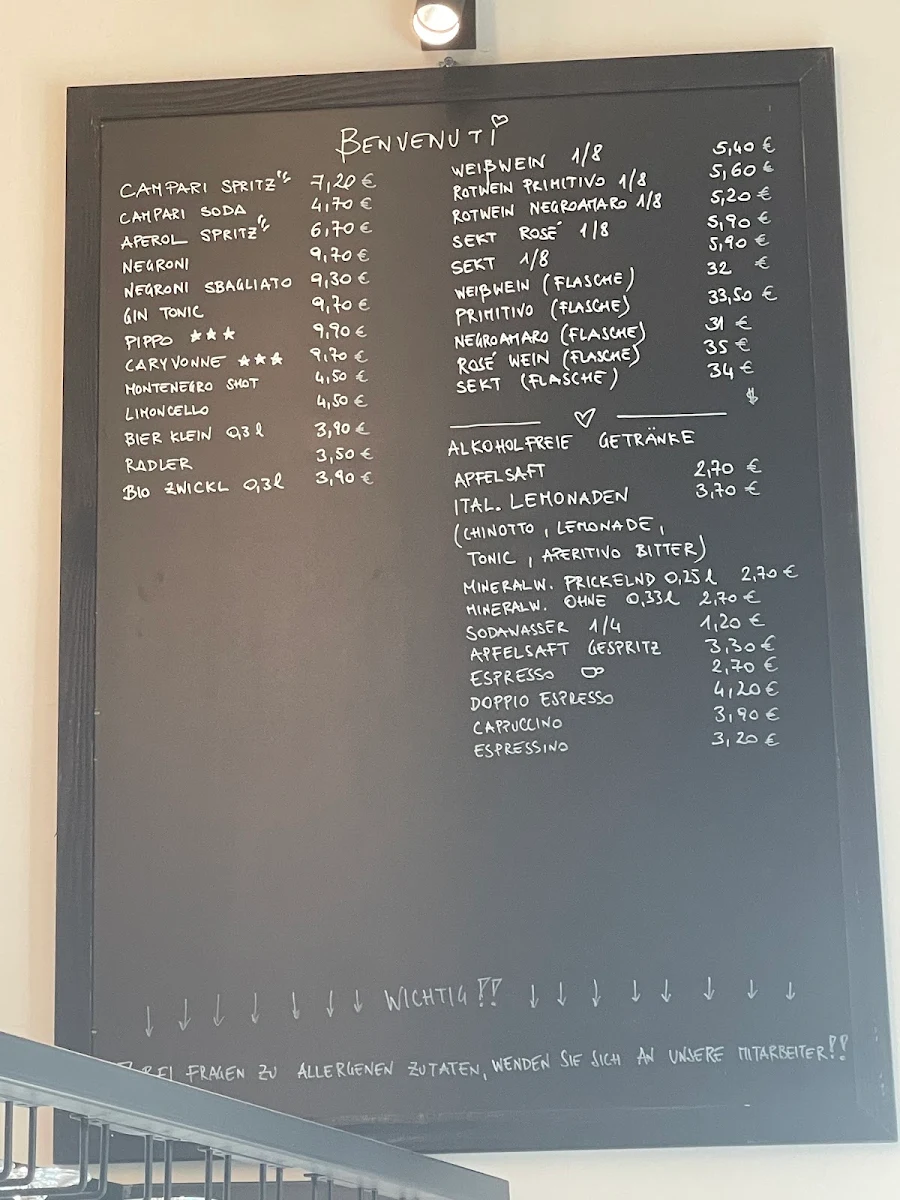 BENVENUTI
CAMPARI SPRITZ 7,20 €
CAMPARI SODA 4,70 €
APEROL SPRITZ 6,70 €
NEGRONI 9,70 €
NEGRONI SBAGLIATO 9,30 €
GIN TONIC 9,70 €
PIPPO ★★★ 9,90 €
CARYVONNE ★★★ 9,70 €
MONTENEGRO SHOT 4,50 €
LIMONCELLO 4,50 €
BIER KLEIN 0,3 l 3,90 €
RADLER 3,50 €
BIO ZWICKL 0,3l 3,90 €
WEIßWEIN 1/8 5,40 €
ROTWEIN PRIMITIVO 1/8 5,60 €
ROTWEIN NEGROAMARO 1/8 5,20 €
SEKT ROSÉ 1/8 5,90 €
SEKT 1/8 5,90 €
WEIßWEIN (FLASCHE) 32 €
PRIMITIVO (FLASCHE) 33,50 €
NEGROAMARO (FLASCHE) 31 €
ROSÉ WEIN (FLASCHE) 35 €
SEKT (FLASCHE) 34 €
ALKOHOLFREIE GETRÄNKE
APFELSAFT 2,70 €
ITAL. LEMONADEN 3,70 €
(CHINOTTO, LEMONADE,
TONIC, APERITIVO BITTER)
MINERALW. PRICKELND 0,25 l 2,70 €
MINERALW. OHNE 0,33l 2,70 €
SODAWASSER 1/4 1,20 €
APFELSAFT GESPRITZ 3,30 €
ESPRESSO 2,70 €
DOPPIO ESPRESSO 4,20 €
CAPPUCCINO 3,90 €
ESPRESSINO 3,20 €
↓ ↓ ↓ ↓ ↓ ↓ ↓ WICHTIG!! ↓ ↓ ↓ ↓ ↓ ↓ ↓ ↓
BEI FRAGEN ZU ALLERGENEN ZUTATEN, WENDEN SIE SICH AN UNSERE MITARBEITER!!